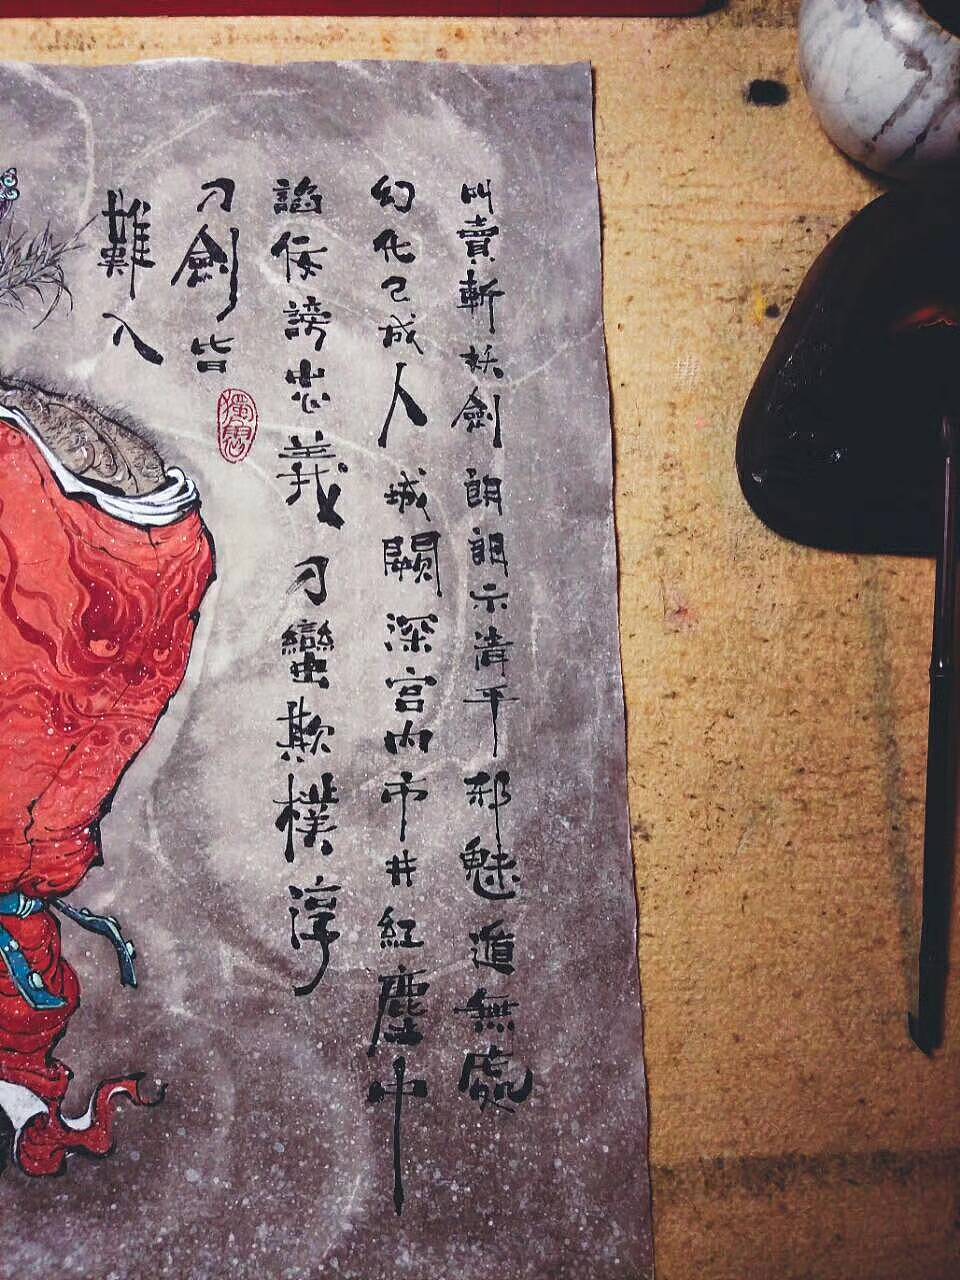 叫賣斬妖劍朗朗示清平邪魅遁無處
幻化已成人城闕深宮內市井紅塵中
諂佞謗忠義刁蠻欺樸淳
刀劍皆
難入